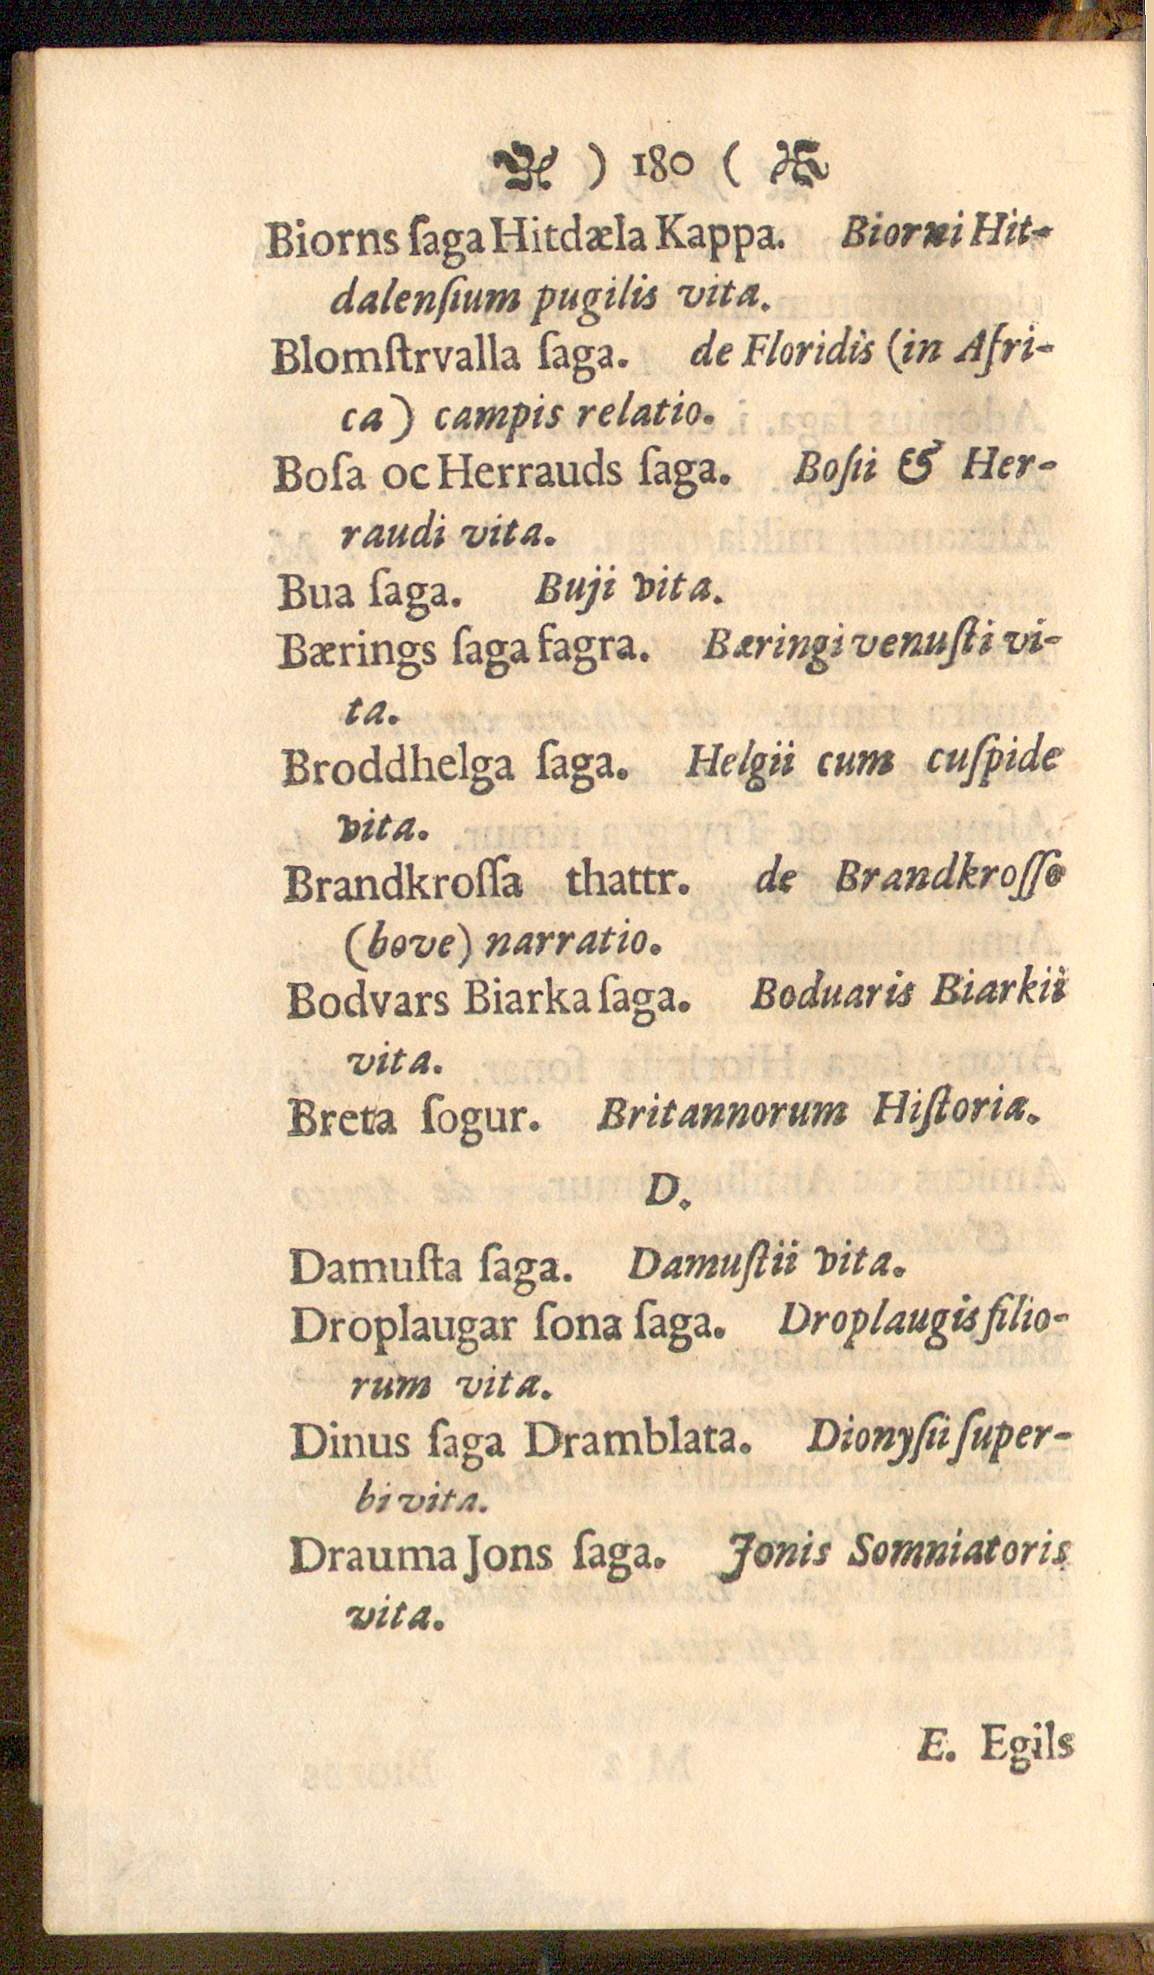 ) 180 (
Biorns ſaga Hitdæla Kappa. Biorni Hit-
dalenſium pugilis vita.
Blomſtrvalla ſaga. de Floridis (in Afri-
ca) campis relatio.
Boſa oc Herrauds ſaga. Boſii & Her-
raudi vita.
Bua ſaga. Buji vita.
Bærings ſaga fagra. Bæringi venuſti vi-
ta.
Broddhelga ſaga. Helgii cum cuſpide
vita.
Brandkroſſa thattr. de Brandkroſſo
(bove) narratio.
Bodvars Biarka ſaga. Boduaris Biarkii
vita.
Breta ſogur. Britannorum Hiſtoria.
D.
Damuſta ſaga. Damuſtii vita.
Droplaugar ſona ſaga. Droplaugis filio-
rum vita.
Dinus ſaga Dramblata. Dionyſii ſuper-
bi vita.
Drauma Jons ſaga. Jonis Somniatoris
vita.
E. Egils